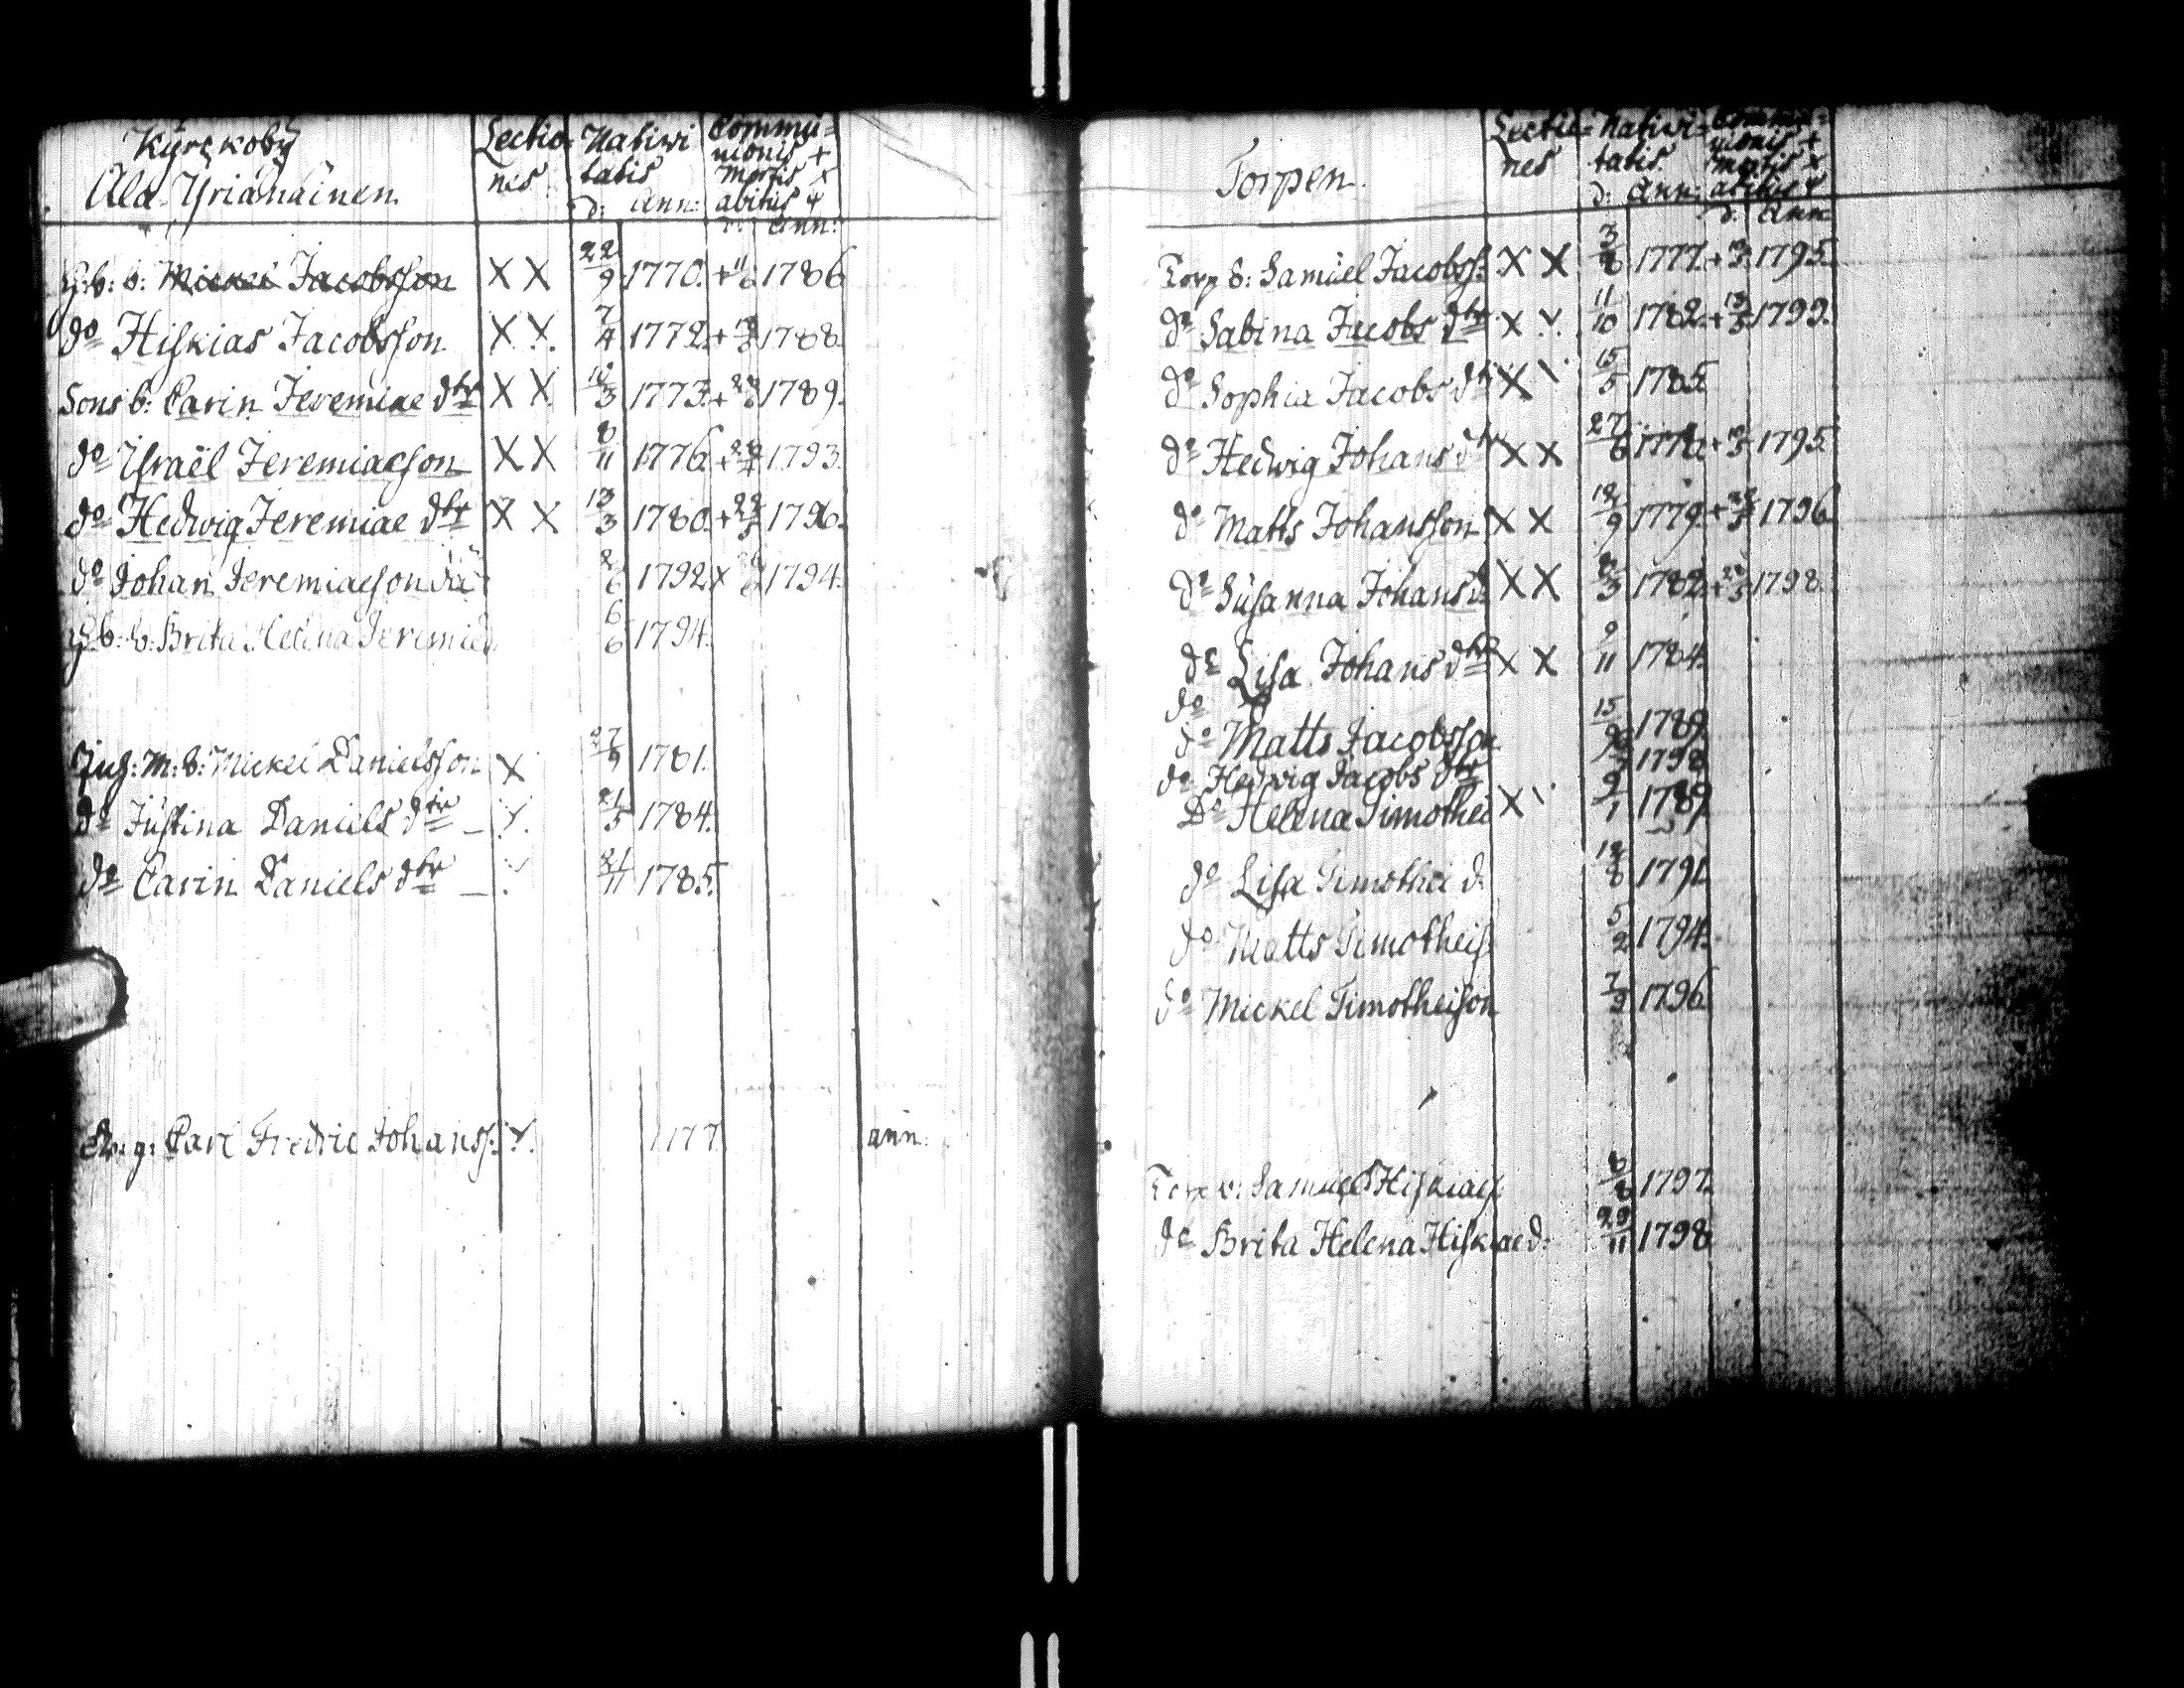 Kyrckoby
Ala Yriänäinen
Lectio=
nes
Nativi
tatis
d: ann:
Commu=
nionis +
mortis x
abitus ψ
d: ann:
G: b: b: Mickel Jacobsson X X 22/9 1770. + 11/6 1786
do Hiskias Jacobsson X X. 7/4 1772. + 1788.
Sons b: Carin Jeremiae dtr X X. 3 1773. + 1789.
do Israël Jeremiaeson X X 8/11 1776. + 1793.
do Hedwig Jeremiae dtr X X 13/3 1780. + 22/5 1796.
do Johan Jeremiaeson 2/6 1792 x 1794.
G: b: b: Brita Helena Jeremiæd 6/6 1794.
Inh: M: b: Mickel Danielsson X 27/9 1781.
do Justina Daniels dtr 21/5 1784.
do Carin Daniels dtr 21/11 1785.
Carl Fredric Johanss. 177 ann:
Torpen.
Lectio=
nes
Nativi=
tatis.
d: ann:
Commu=
nionis +
mortis x
abitus ψ
d: ann
Torp b: Samuel Jacobss: X X 3/8 1777. + 1795.
do Sabina Jacobs dtr X 11/10 1782. + 13/5 1799.
do Sophia Jacobs dtr X 15/5 1785
do Hedwig Johans dtr X X 27/6 177 + 1795
do Matts Johansson X X 18/9 1779. + 1796
do Susanna Johans d: X X 8/3 1782. + 1798
do Lisa Johans dtr X X 9/11 1784.
do
do Matts Jacobsson 15 1789
do Hedwig Jacobs dtr 1798
Do Helena Timothei X 9/1 1789
do Lisa Timothei d. 18/8 1791
do Matts Timotheis 5/2 1794.
do Mickel Timotheison 7/9 1796
Torp b: Samuel Hiskiaes 8/8 1797.
do Brita Helena Hiskiae d: 29/11 1798